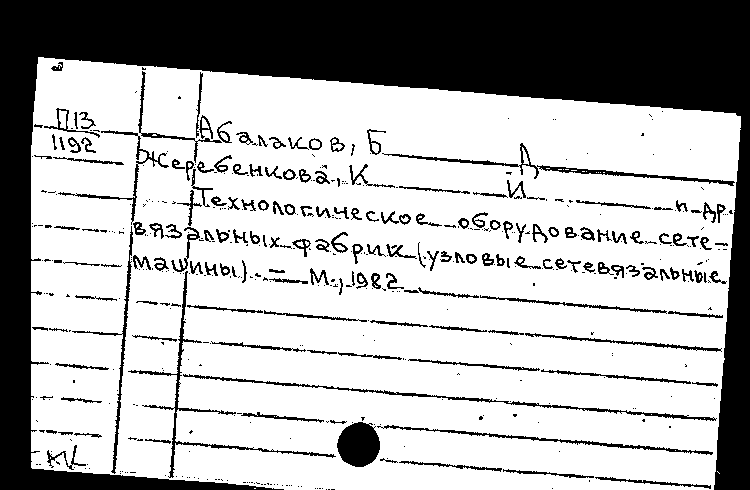 П13
1192
Абалаков, Б Д
Жеребенкова, К И и др.
Технологическое оборудование сете-
вязальных фабрик (узловые сетевязальные
машины). – М., 1982
КК